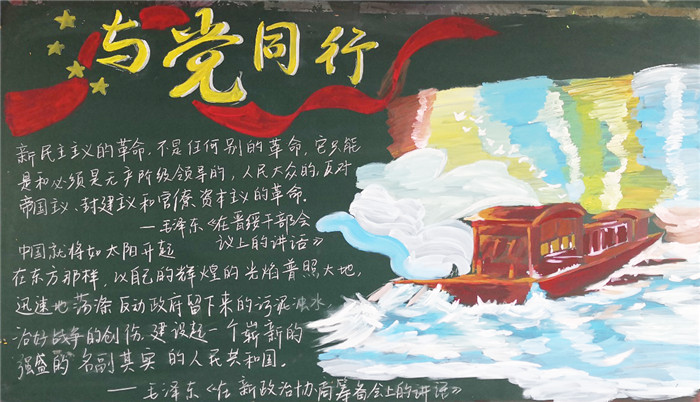 与党同行
新民主主义的革命，不是任何别的革命，它只能
是和必须是无产阶级领导的，人民大众的，反对
帝国主义、封建主义和官僚资本主义的革命.
——毛泽东《在晋绥干部会
议上的讲话》
中国就将如太阳升起
在东方那样，以自己的辉煌的光焰普照大地，
迅速地荡涤反动政府留下来的污泥浊水，
治好战争的创伤，建设起一个崭新的
强盛的名副其实的人民共和国。
——毛泽东《在新政治协商筹备会上的讲话》